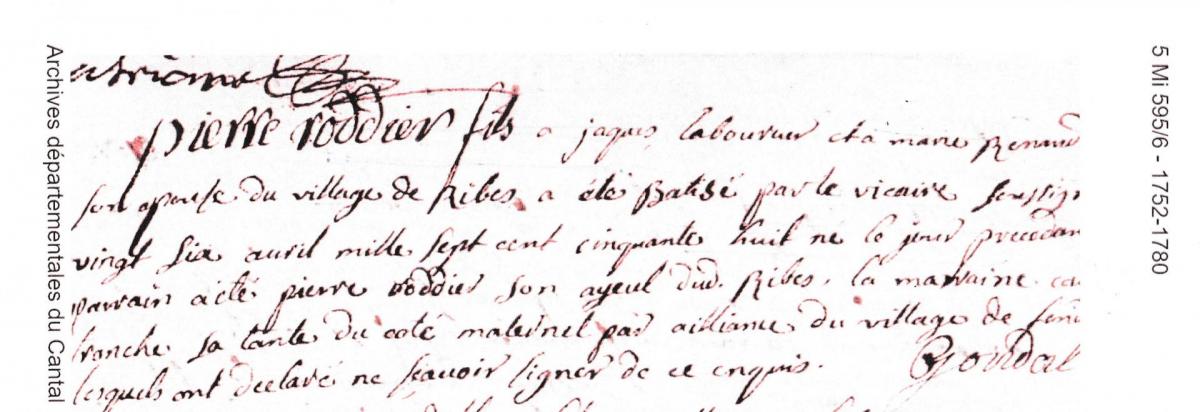 pierre roddier fils a jaques laboureur et a marie Renaud
son epouse du village de Ribes a été Batisé par le vicaire soussign
vingt six avril mille sept cent cinquante huit né le jour preceden
parrain a été pierre roddier son ayeul dud. Ribes. la marraine
tronche sa tante du coté maternel par ailliance du village de
lesquels ont declaré ne scavoir signer de ce enquis.
Archives départementales du Cantal
5 Mi 595/6 - 1752-1780